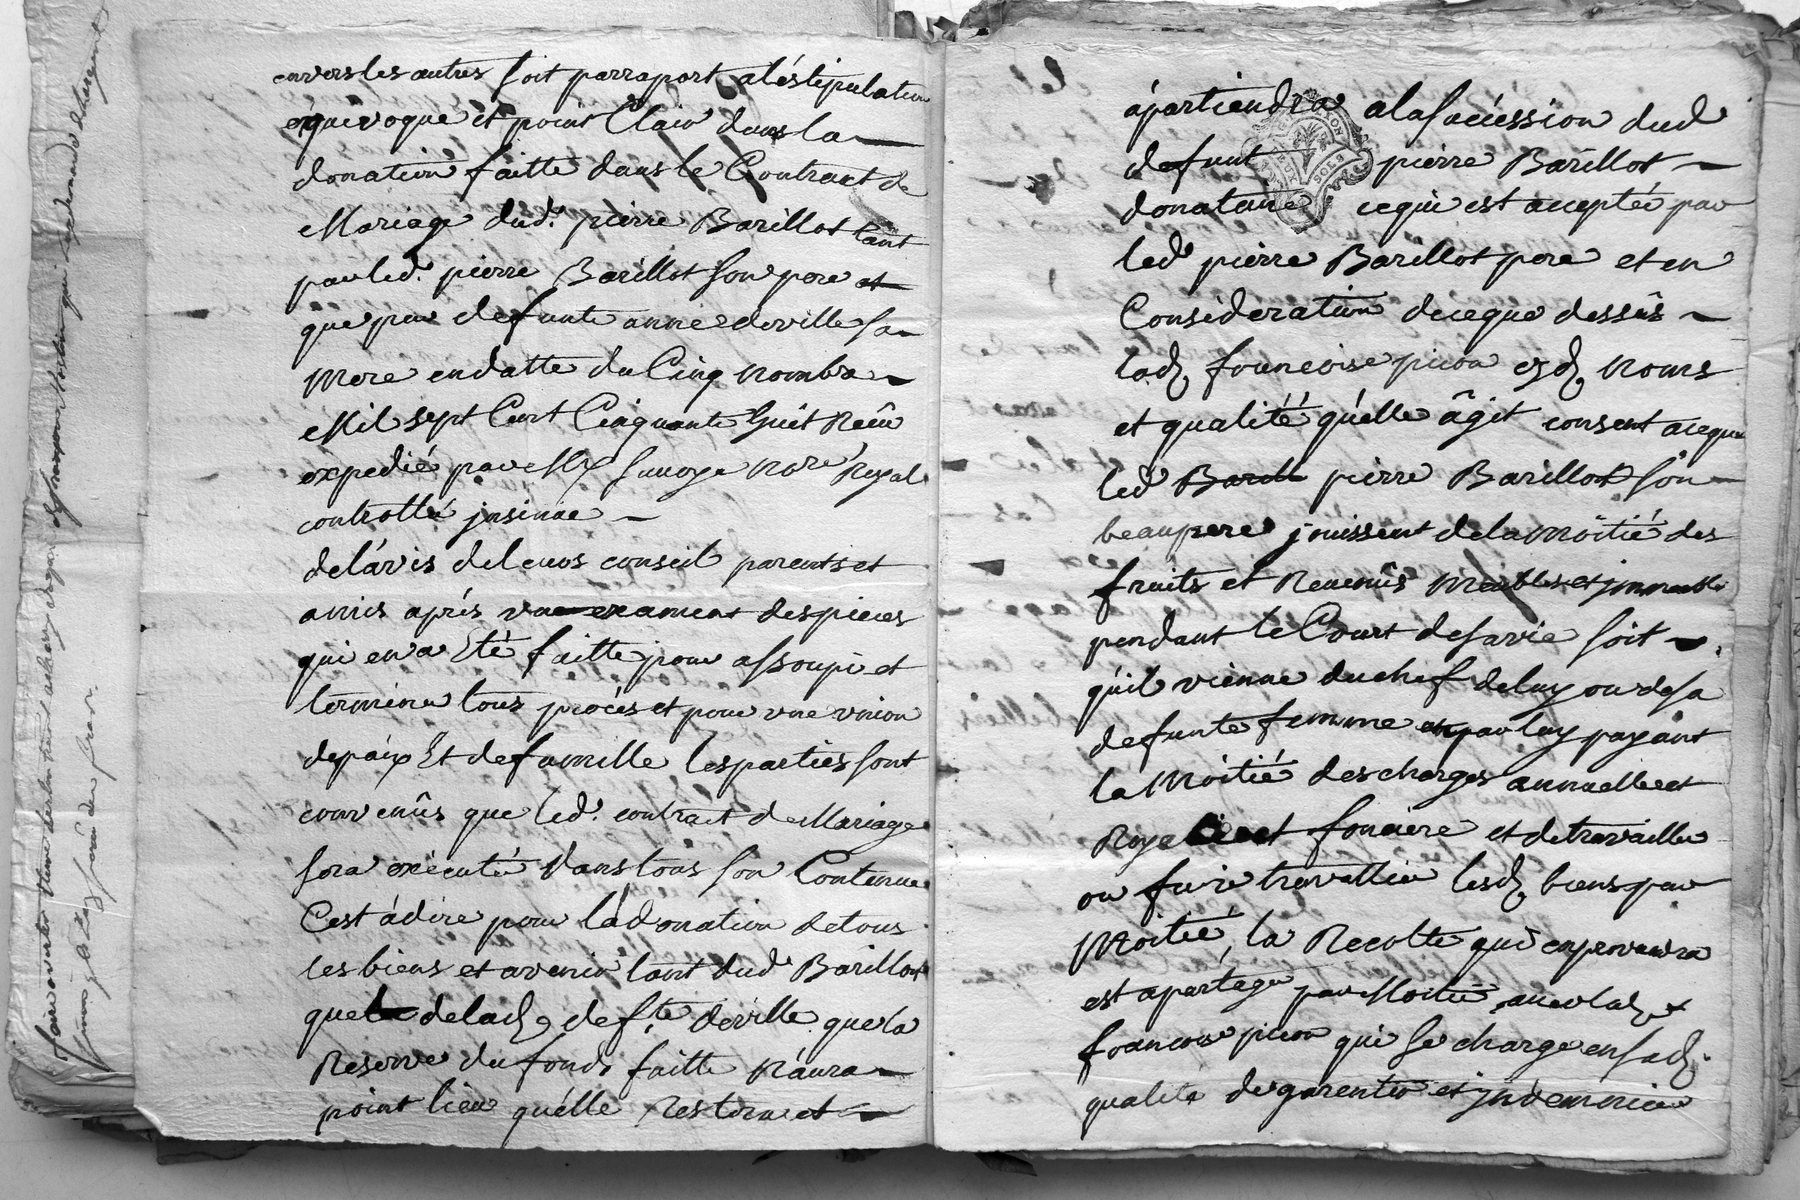 envers les autres soit parraport a lestipulation
équivoque et point Clair dans la
donation faitte dans le Contract de
Mariage dud. pierre Barillot tant
par led. pierre Barillot son pere et
que par defunte anne deville sa
mere en datte du Cinq novmbre
Mil sept Cent Cinquante huit Reçu
expedié par Me Royal
controllé insinue
de lávis de leurs conseil parents et
amis aprés vue exament des pieces
qui en a Eté faitte pour assoupir et
terminer tous procés et pour vne vnion
de paix Et de famille les parties sont
convenûs que led. contract de Mariage
sera exécuté dans tous son Contenue
C'est ádire pour ládonation de tous
les biens et avenir tant dud Barillot
que de lad. defte deville que la
Reserve du fond faitte n'áura
point lieu qu'elle restera et
ápartiendra a la succéssion dud
defunt pierre Barillot
donataire ce qui est acceptée par
led pierre Barillot pere et en
Consideration de ceque dessûs
lad francoise picon esd noms
et qualitéé qu'elle âgit consent aceque
led Baril pierre Barillot son
beaupere jouissent de la moitié des
fruits et Revenûs meubles et jmmeuble
pendant le Court de sa vie soit
qu'il vienne du chef de luy ou de sa
defunte femme en par luy payant
la moitié des charges annuelle et
Royale et fonciere et de travailler
ou faire travallier lesd biens par
Moitié, la Recolte qui en proviendra
est apartége par Moitié avec lad
francoise picon qui se charge en sad.
qualité de garentir et jndemnicer
faire avertir